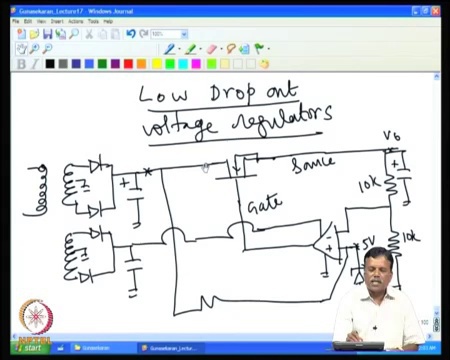 Gunasekaran_Lecture17 - Windows Journal
File Edit View Insert Actions Tools Help
100%
B I
Low Drop out
voltage regulators
Vo
Source
Gate
10k
10k
5V
+
+
+
-
+
NPTEL
start
Gunasekaran
Gunasekaran_Lectu...